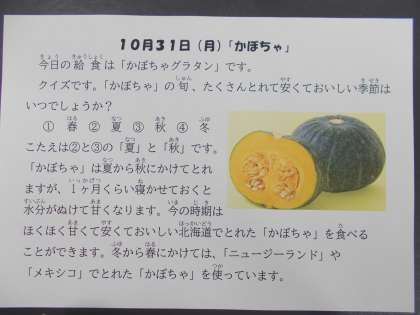 10月31日(月)「かぼちゃ」
今日の給食は「かぼちゃグラタン」です。
クイズです。「かぼちゃ」の旬、たくさんとれて安くておいしい季節は
いつでしょうか?
① 春 ② 夏 ③ 秋 ④ 冬
こたえは②と③の「夏」と「秋」です。
「かぼちゃ」は夏から秋にかけてとれ
ますが、1ヶ月くらい寝かせておくと
水分がぬけて甘くなります。今の時期は
ほくほく甘くて安くておいしい北海道でとれた「かぼちゃ」を食べる
ことができます。冬から春にかけては、「ニュージーランド」や
「メキシコ」でとれた「かぼちゃ」を使っています。